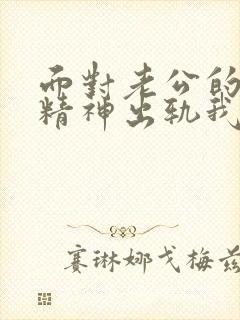 而對老公的
精神出轨我
賽琳娜戈梅茲